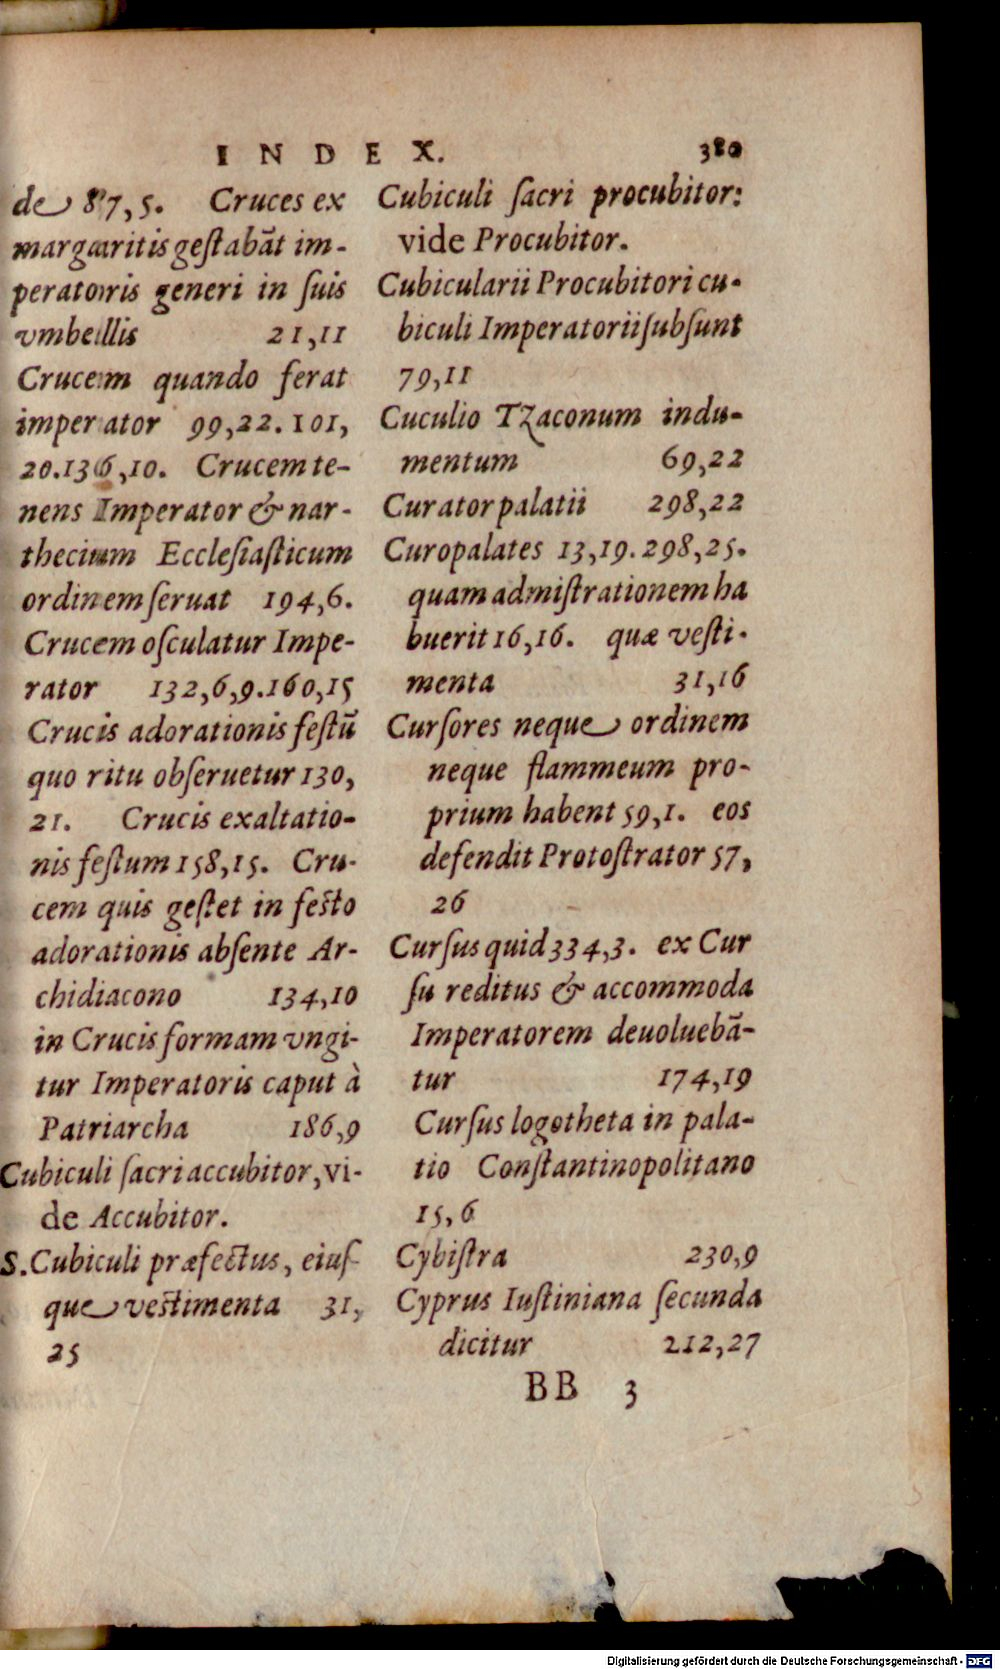 INDEX. 380
de 87,5. Cruces ex
margaritis gestabāt im-
peratoris generi in suis
vmbellis 21,11
Crucem quando ferat
imperator 99,22.101,
20.136,10. Crucem te-
nens Imperator & nar-
thecium Ecclesiasticum
ordinem seruat 194,6.
Crucem osculatur Impe-
rator 132,6,9.160,15
Crucis adorationis festū
quo ritu obseruetur 130,
21. Crucis exaltatio-
nis festum 158,15. Cru-
cem quis gestet in festo
adorationis absente Ar-
chidiacono 134,10
in Crucis formam vngi-
tur Imperatoris caput à
Patriarcha 186,9
Cubiculi sacri accubitor, vi-
de Accubitor.
S. Cubiculi præfectus, eius-
que vestimenta 31,
25
Cubiculi sacri procubitor:
vide Procubitor.
Cubicularii Procubitori cu-
biculi Imperatorii subsunt
79,11
Cuculio Tzaconum indu-
mentum 69,22
Curator palatii 298,22
Curopalates 13,19.298,25.
quam admistrationem ha
buerit 16,16. quæ vesti-
menta 31,16
Cursores neque ordinem
neque flammeum pro-
prium habent 59,1. eos
defendit Protostrator 57,
26
Cursus quid 334,3. ex Cur
su reditus & accommoda
Imperatorem deuoluebā-
tur 174,19
Cursus logotheta in pala-
tio Constantinopolitano
15,6
Cybistra 230,9
Cyprus Iustiniana secunda
dicitur 212,27
BB 3
Digitalisierung gefördert durch die Deutsche Forschungsgemeinschaft - DFG